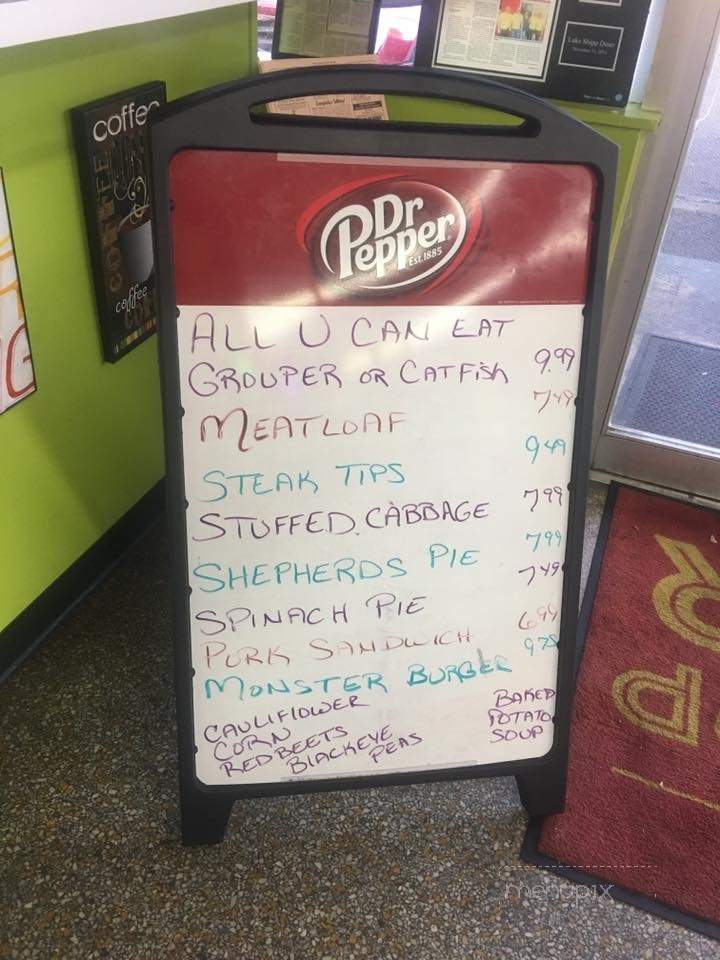 Lake Shipp Diner
coffee
COFFEE
coffee
Dr
Pepper
EST. 1885
ALL U CAN EAT
GROUPER OR CATFISH 9.99
MEATLOAF 7.49
STEAK TIPS 9.49
STUFFED CABBAGE 7.99
SHEPHERDS PIE 7.99
SPINACH PIE 7.49
PORK SANDWICH 6.99
MONSTER BURGER 9.75
CAULIFLOWER
CORN
RED BEETS
BLACKEYE
PEAS
BAKED
POTATO
SOUP
menupix